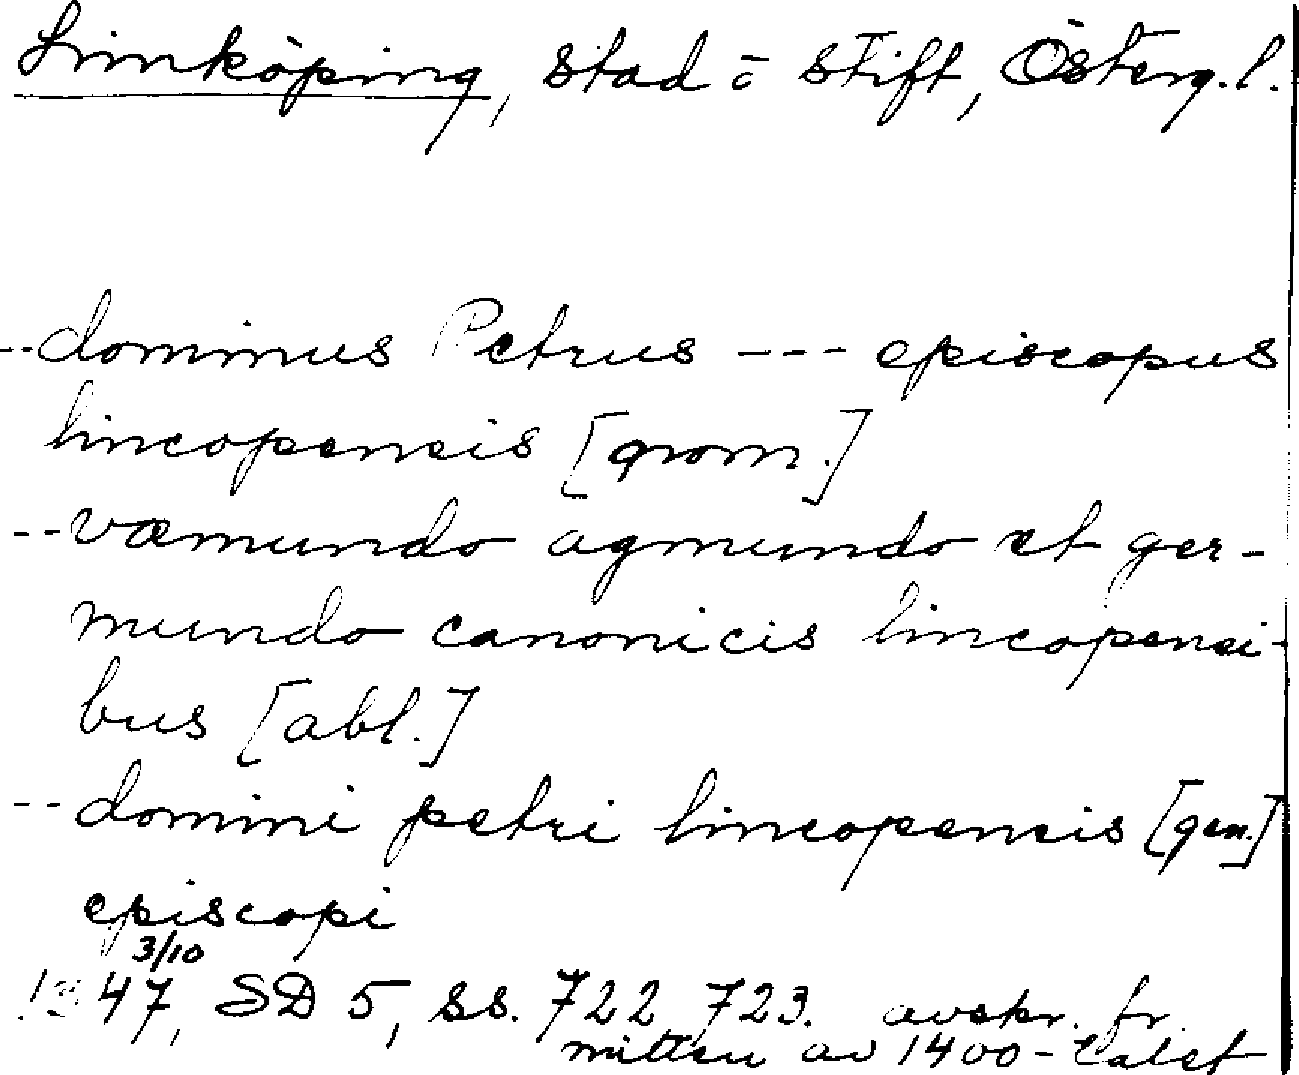 Linköping, stad o stift, Österg.l.
--dominus Petrus --- episcopus
lincopensis [nom.]
--væmundo agmundo et ger-
mundo canonicis lincopensi-
bus [abl.]
--domini petri lincopensis [gen.]
episcopi
3/10
1347, SD 5, ss. 722, 723. avskr. fr.
mitten av 1400-talet